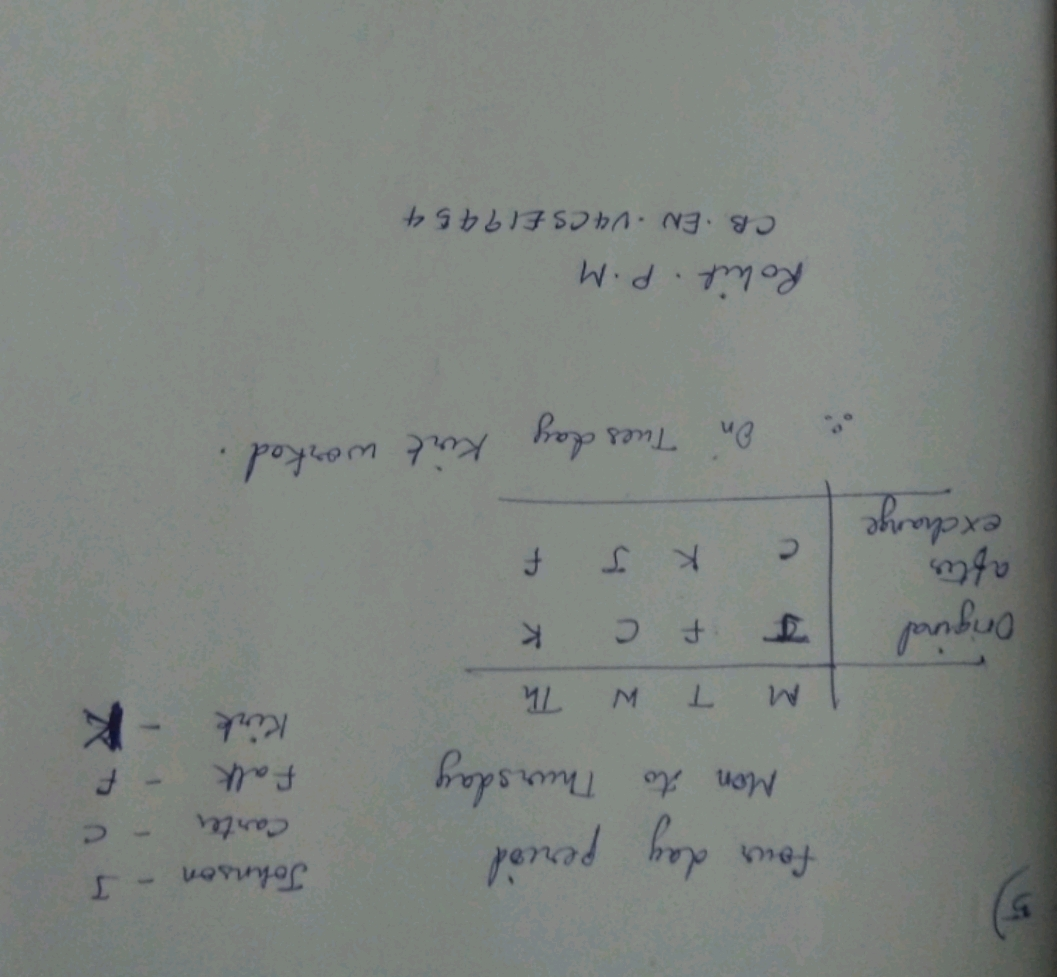 5)
Four day period
Mon to Thursday
Johnson - J
Carter - C
Falk - F
Kirk - K
M T W Th
Original J F C K
after exchange C K J F
∴ On Tuesday Kirk worked.
Rohit. P. M
CB.EN.U4CSE19454